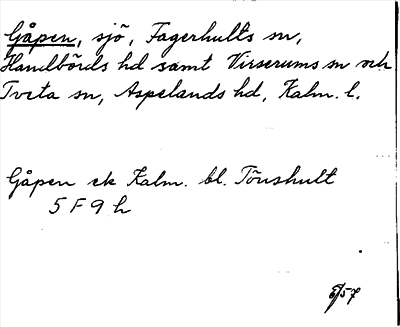 Gåpen, sjö, Fagerhults sn,
Handbörds hd samt Virserums sn och
Tveta sn, Aspelands hd, Kalm. l.
Gåpen ek Kalm. bl. Tönshult
5 F 9 h
6/57